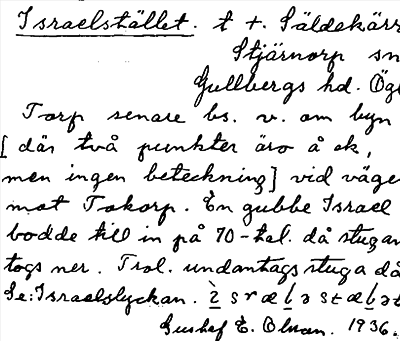 Israelstället. t +. Säldekärr
Stjärnorp sn
Gullbergs hd. Ögl
Torp senare bs. v. om byn
[där två punkter äro å ek,
men ingen beteckning] vid väge
mot Takorp. En gubbe Israel
bodde till in på 70-tal. då stugan
togs ner. Trol. undantagsstuga då
Se: Israelslyckan. ì s r æ l ə s t æ l ə t
Gustaf E. Olsson. 1936.